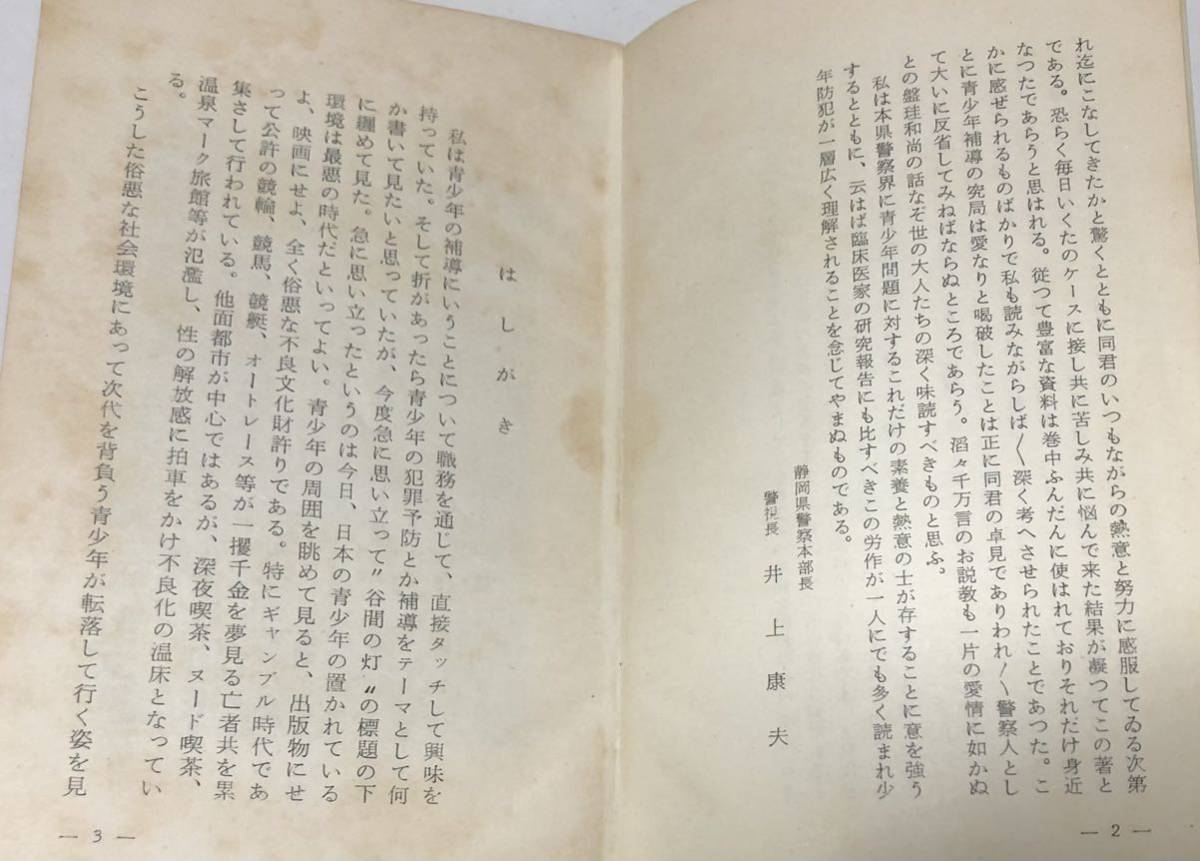 れ迄にこなしてきたかと驚くとともに同君のいつもながらの熱意と努力に感服してゐる次第
である。恐らく毎日いくたのケースに接し共に苦しみ共に悩んで来た結果が凝つてこの著と
なつたであらうと思はれる。従つて豊富な資料は巻中ふんだんに使はれておりそれだけ身近
かに感ぜられるものばかりで私も読みながらしば〱深く考へさせられたことであつた。こ
とに青少年補導の究局は愛なりと喝破したことは正に同君の卓見でありわれ〱警察人とし
て大いに反省してみねばならぬところであらう。滔々千万言のお説教も一片の愛情に如かぬ
との盤珪和尚の話なぞ世の大人たちの深く味読すべきものと思ふ。
私は本県警察界に青少年問題に対するこれだけの素養と熱意の士が存することに意を強う
するとともに、云はば臨床医家の研究報告にも比すべきこの労作が一人にでも多く読まれ少
年防犯が一層広く理解されることを念じてやまぬものである。
静岡県警察本部長
警視長 井上康夫
― 2 ―
はしがき
私は青少年の補導にいうことについて職務を通じて、直接タッチして興味を
持っていた。そして折があったら青少年の犯罪予防とか補導をテーマとして何
か書いて見たいと思っていたが、今度急に思い立って〝谷間の灯〟の標題の下
に纒めて見た。急に思い立ったというのは今日、日本の青少年の置かれている
環境は最悪の時代だといってよい。青少年の周囲を眺めて見ると、出版物にせ
よ、映画にせよ、全く俗悪な不良文化財許りである。特にギャンブル時代であ
って公許の競輪、競馬、競艇、オートレース等が一攫千金を夢見る亡者共を累
集さして行われている。他面都市が中心ではあるが、深夜喫茶、ヌード喫茶、
温泉マーク旅館等が氾濫し、性の解放感に拍車をかけ不良化の温床となってい
る。
こうした俗悪な社会環境にあって次代を背負う青少年が転落して行く姿を見
― 3 ―